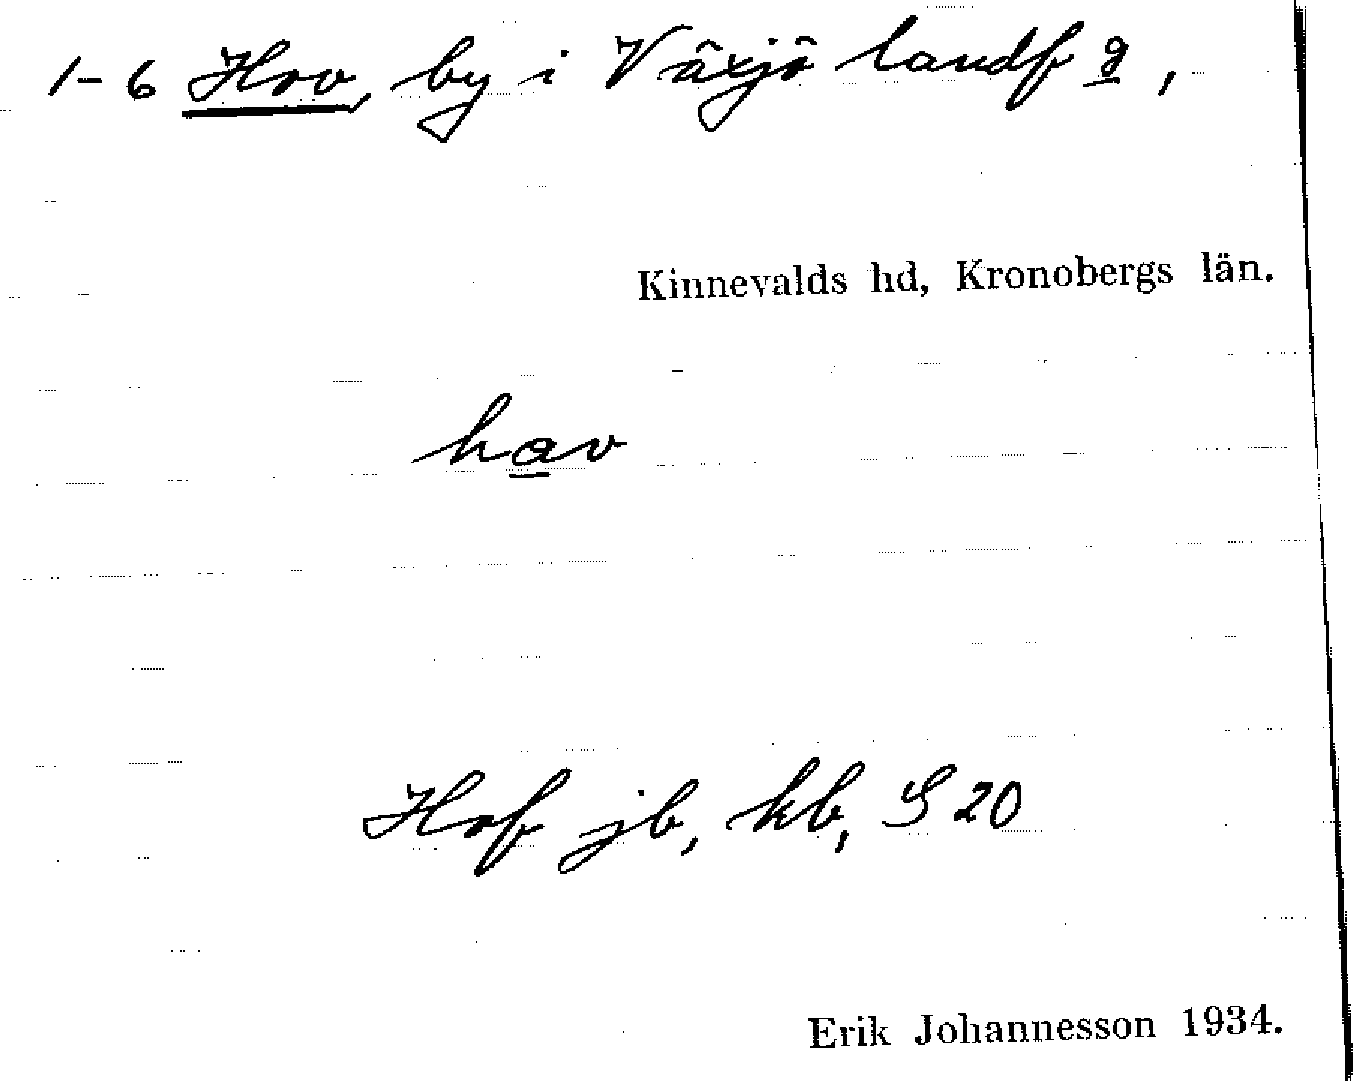 1-6 Hov, by i Växjö landfg,
Kinnevalds hd, Kronobergs län.
hav
Hof jb, kb, S 20
Erik Johannesson 1934.